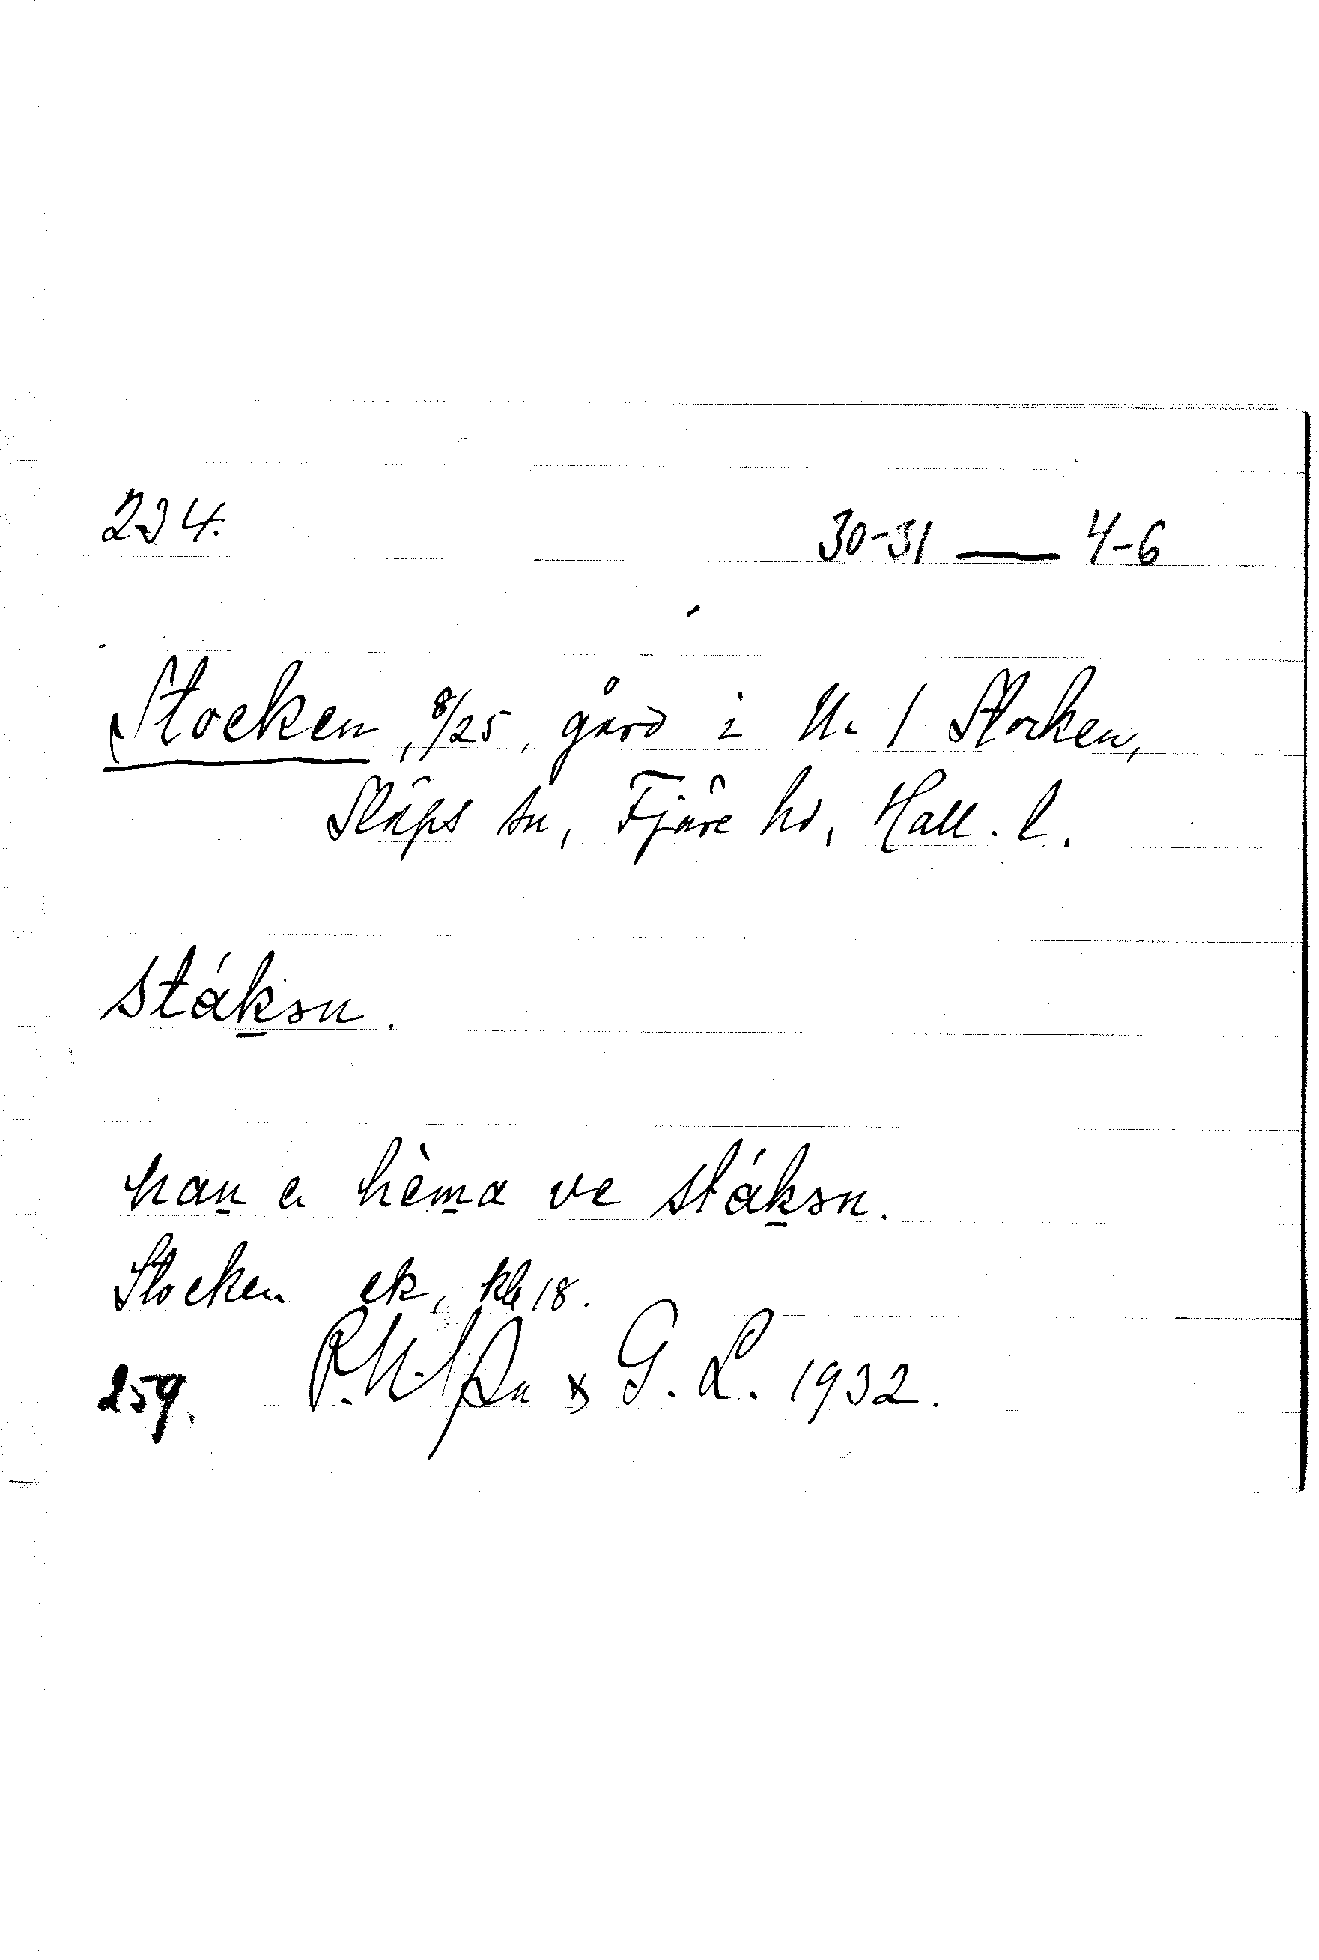 234. 30-31 — 4-6
Stocken, 8/25, gård i N. 1 Stocken,
Släps sn, Fjäre hd, Hall. l.
sták̲ən.
han̲ e hèm̲a ve sták̲ən.
Stocken ek, kb 18.
259. G. L. 1932.